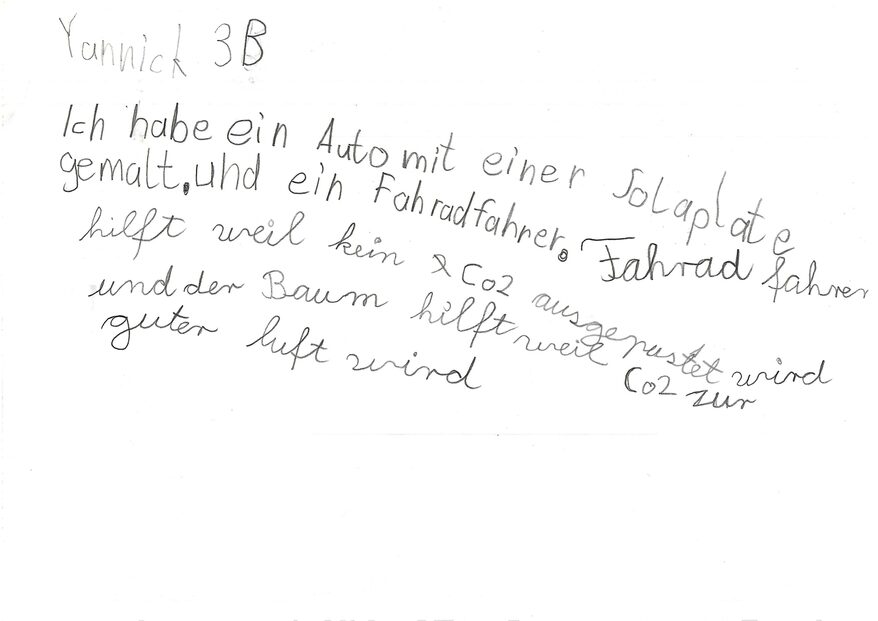 Yannick 3B
Ich habe ein Auto mit einer Solaplate
gemalt. und ein Fahradfahrer. Fahrad fahrer
hilft weil kein Co2 ausgepustet wird
und der Baum hilft weil Co2 zur
guter luft wird